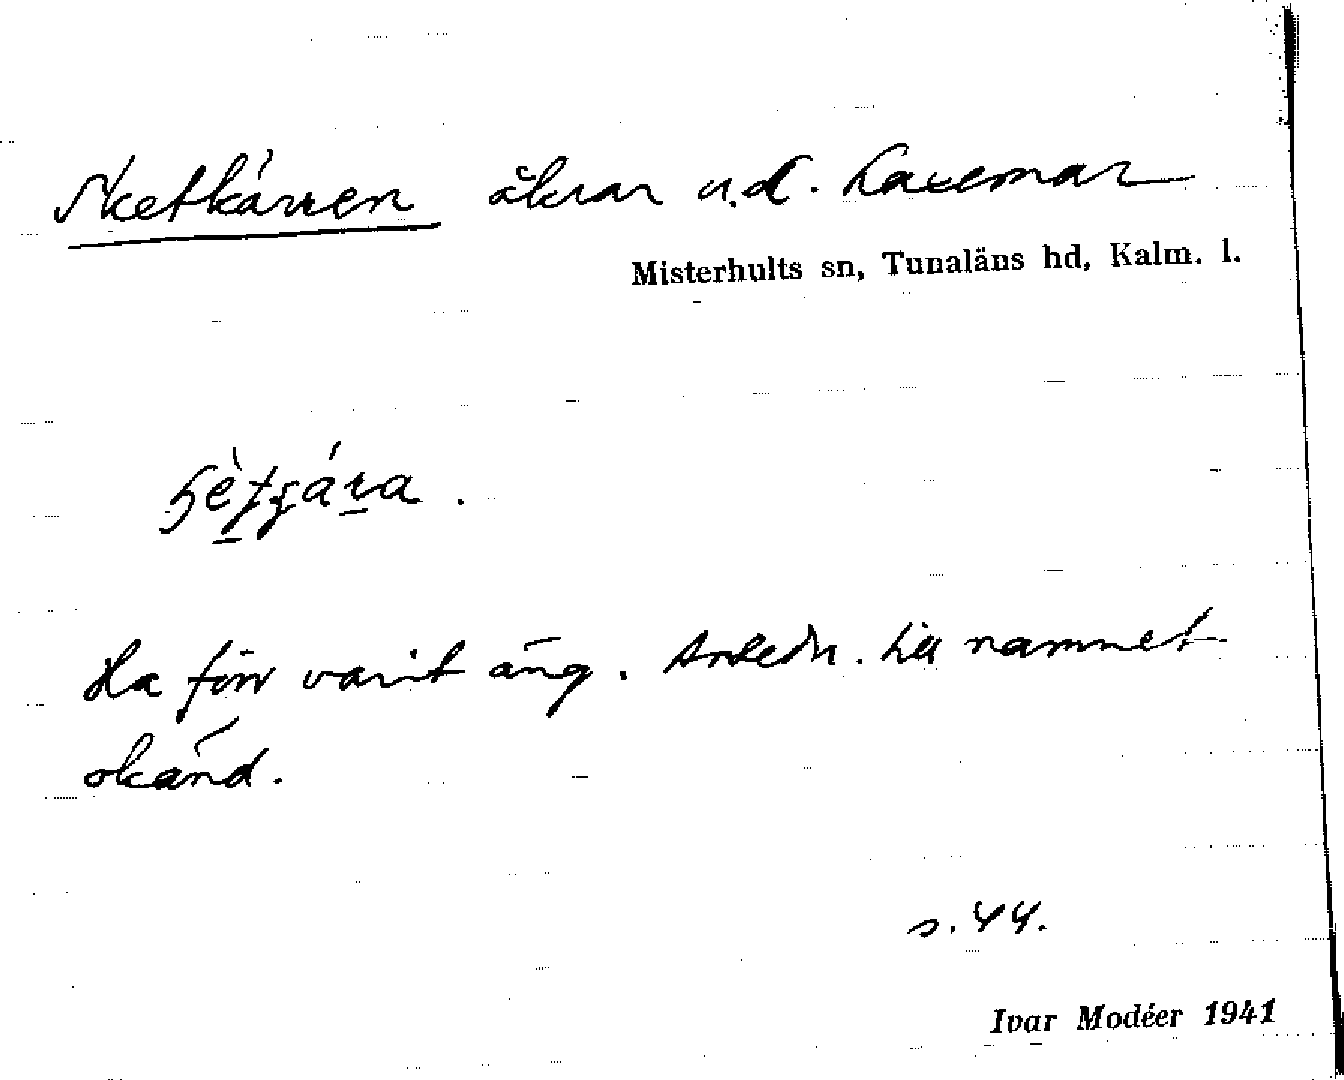 Sketkärren åkrar u.d. Laxemar
Misterhults sn, Tunaläns hd, Kalm. l.
Ha förr varit äng. Anledn. till namnet
okänd.
s. 44.
Ivar Modéer 1941